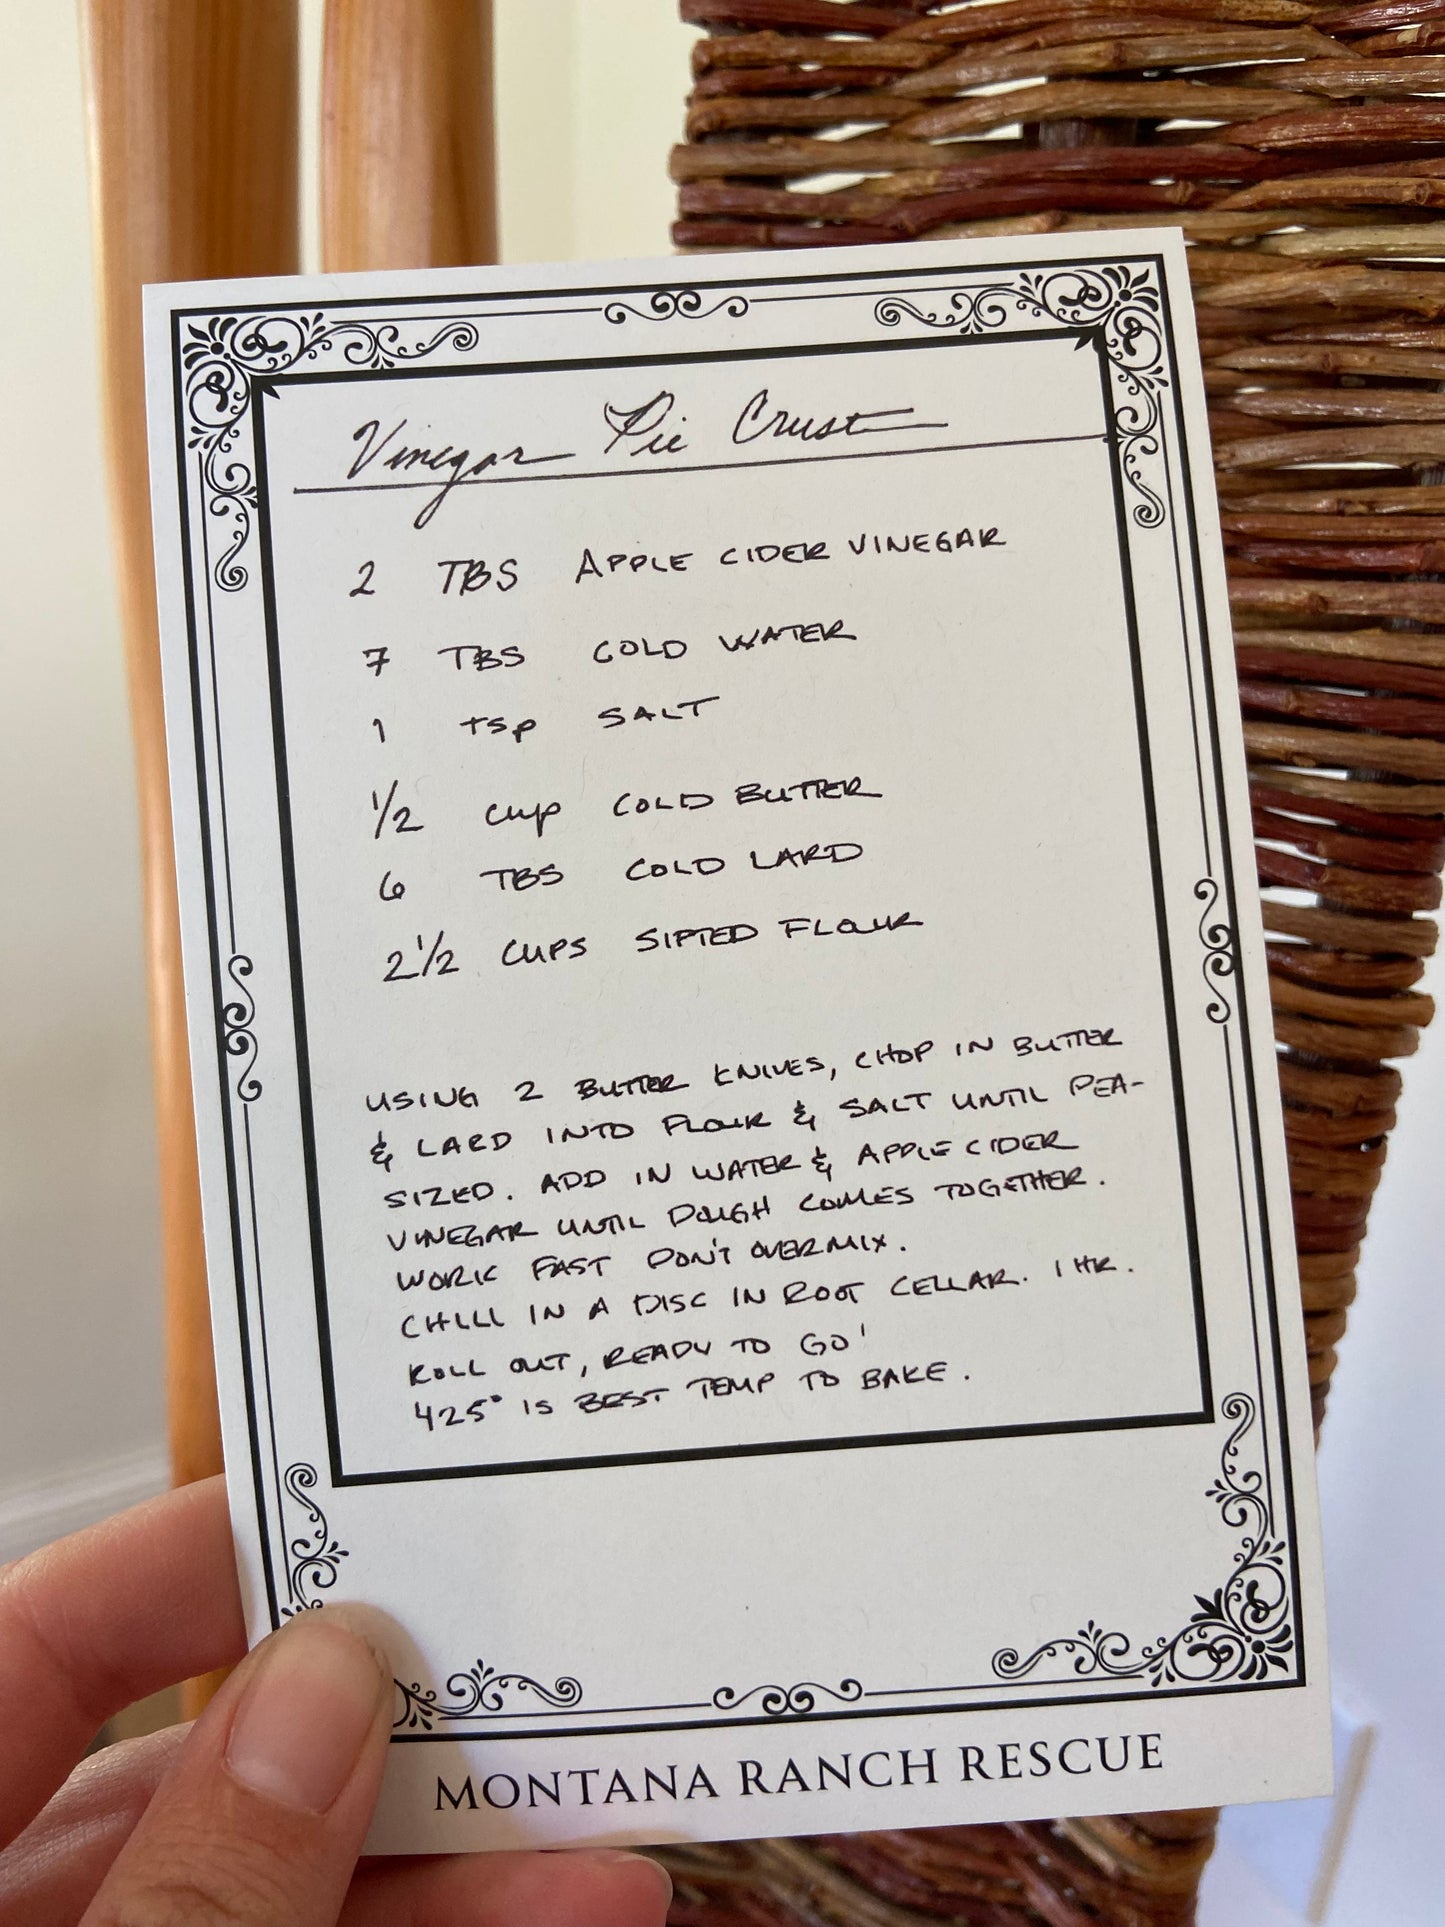 Vinegar Pie Crust
2 TBS APPLE CIDER VINEGAR
7 TBS COLD WATER
1 tsp SALT
1/2 cup COLD BUTTER
6 TBS COLD LARD
2 1/2 CUPS SIFTED FLOUR
USING 2 BUTTER KNIVES, CHOP IN BUTTER
& LARD INTO FLOUR & SALT UNTIL PEA-
SIZED. ADD IN WATER & APPLE CIDER
VINEGAR UNTIL DOUGH COMES TOGETHER.
WORK FAST DON'T OVERMIX.
CHILL IN A DISC IN ROOT CELLAR. 1 HR.
ROLL OUT, READY TO GO!
425° IS BEST TEMP TO BAKE.
MONTANA RANCH RESCUE